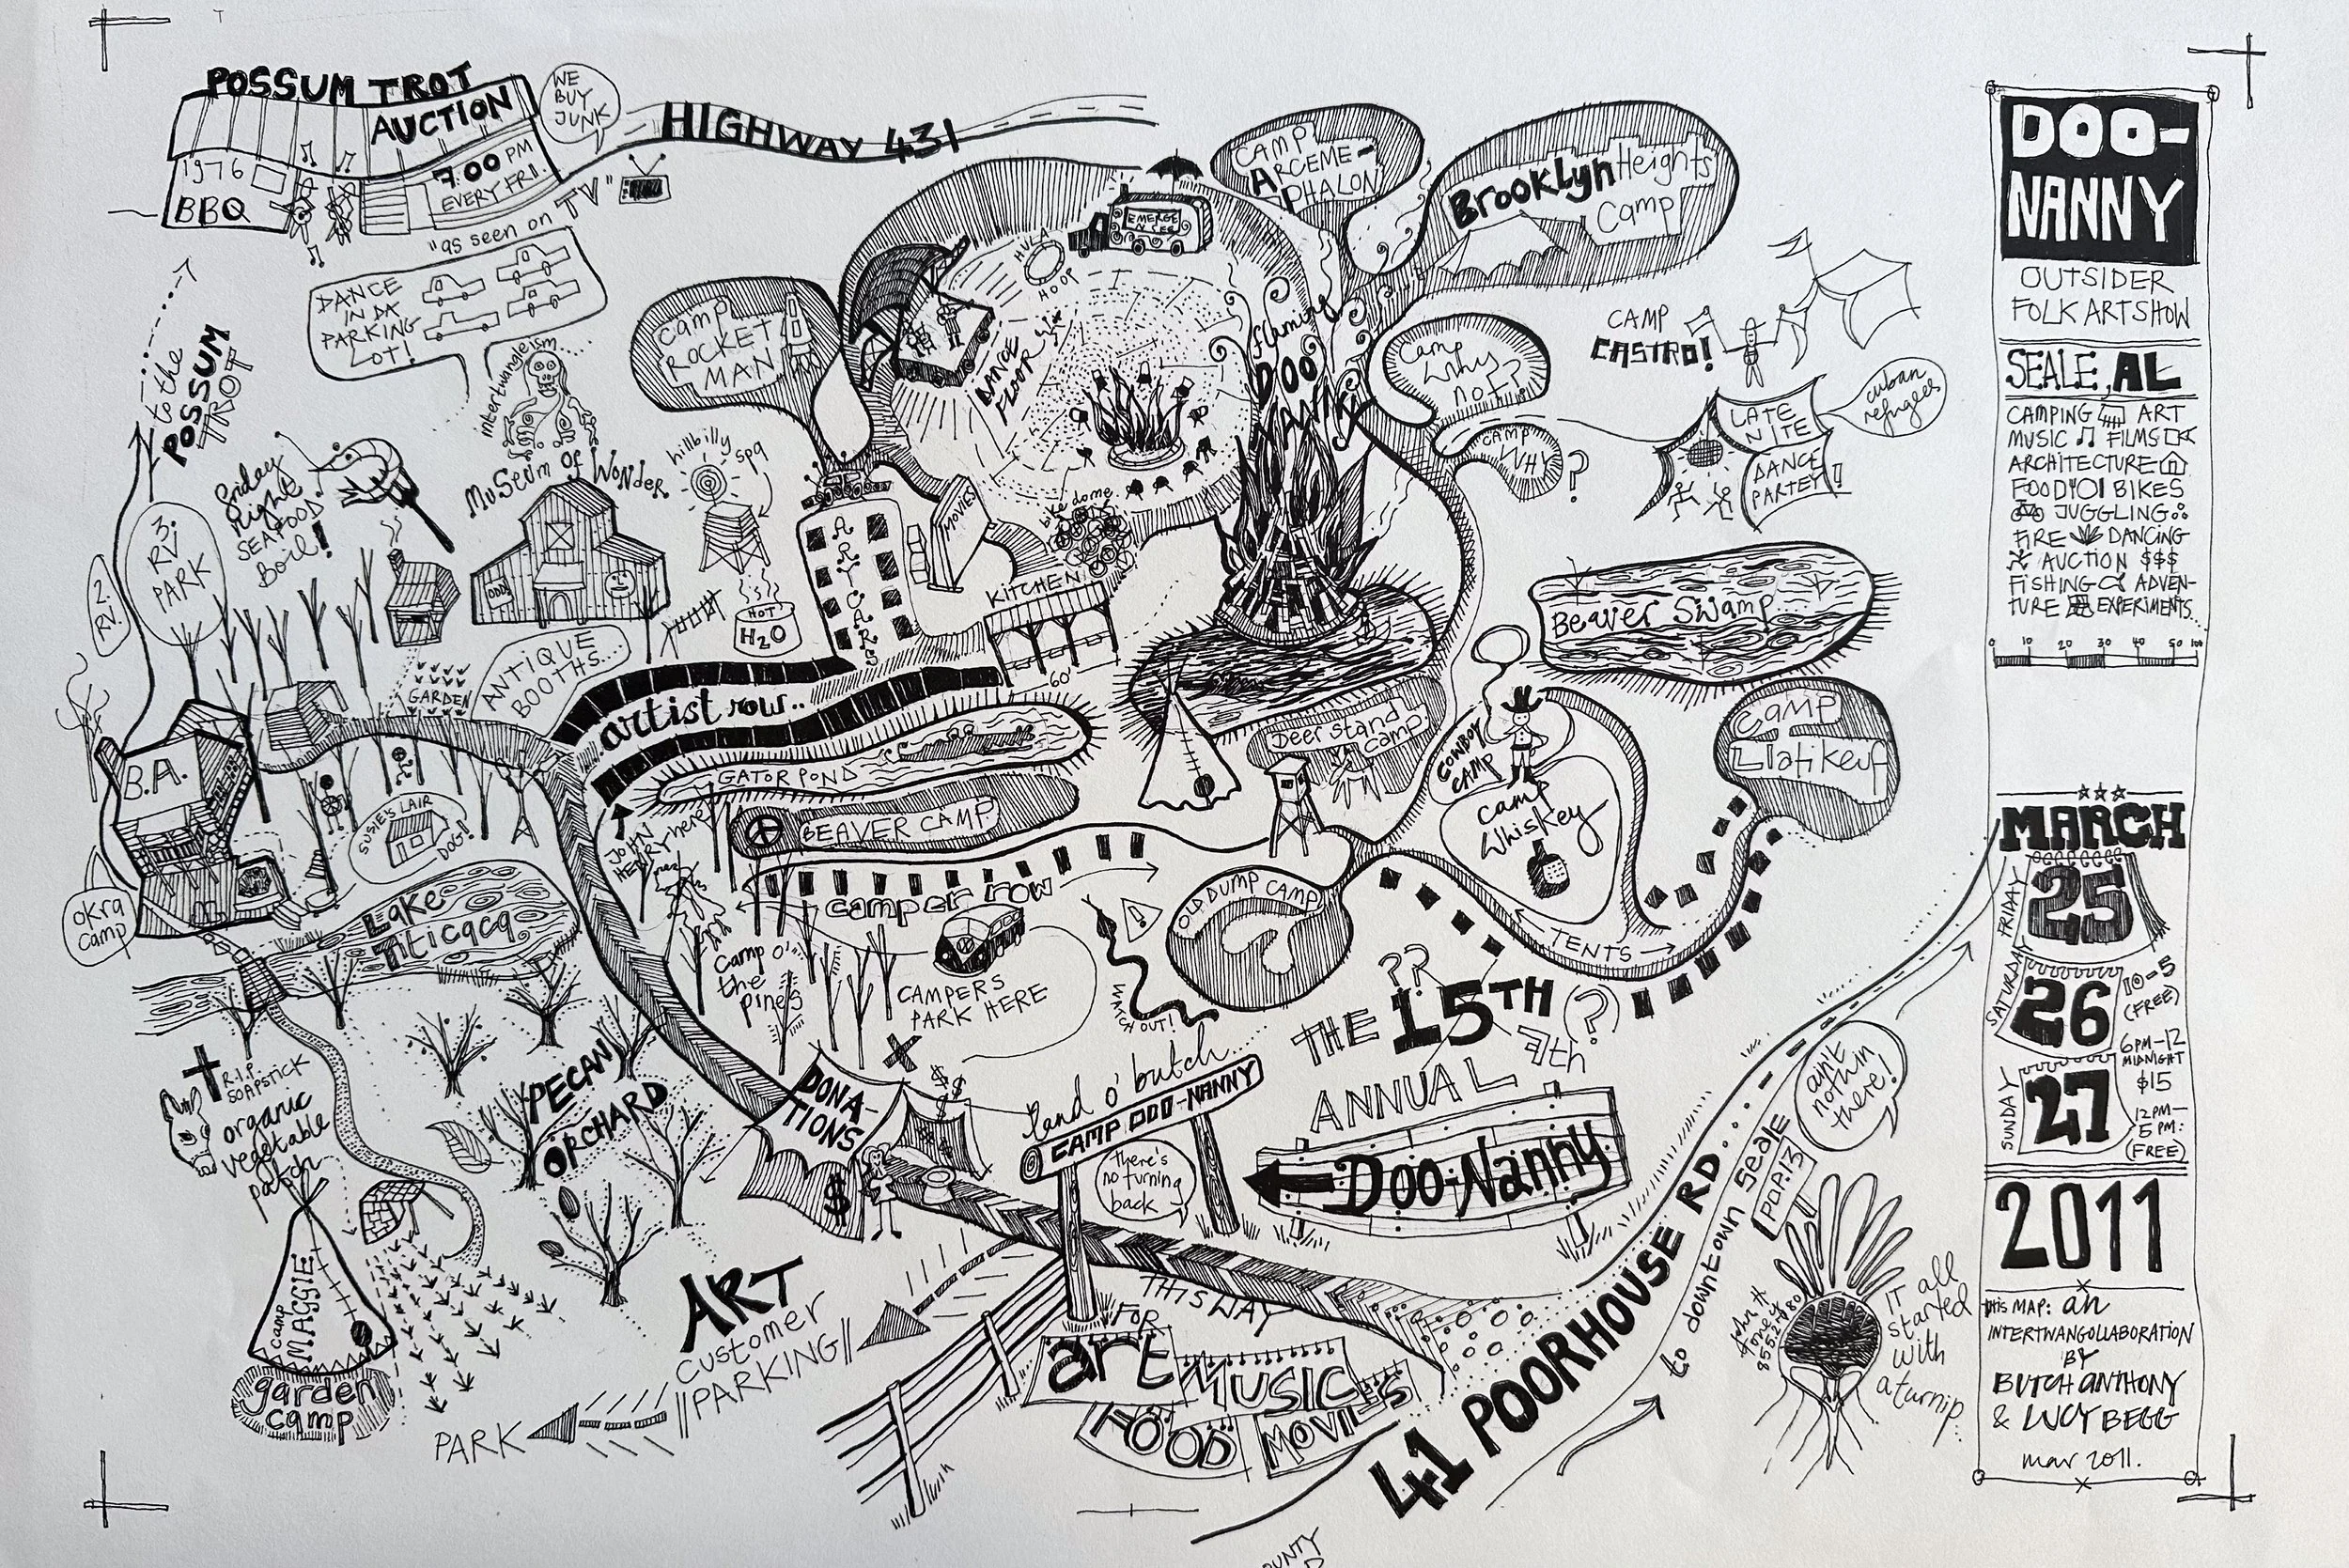 POSSUM TROT
AUCTION
7:00 PM
EVERY FRI.
1976
BBQ
WE
BUY
JUNK
HIGHWAY 431
"as seen on TV"
DANCE
IN DA
PARKING
LOT!
to the
POSSUM
TROT
intertwangleism
Museum of Wonder
ODD
Friday
night
SEAFOOD
Boil!
3.
RV
PARK
2.
RV.
hillbilly
spa
HOT
H2O
ANTIQUE
BOOTHS....
GARDEN
B.A.
SUSIE'S LAIR
DOG!
okra
camp
Lake
Titicaca
Camp
ROCKET
MAN
HULA
HOOP
EMERGE
N SEE
DANCE
FLOOR
MOVIES
bike dome
KITCHEN
60'
ART CARS
artist row..
GATOR POND
BEAVER CAMP
JOHN
HENRY here
camper row
CAMPERS
PARK HERE
Camp O'
the
pines
CAMP
ARCEME-
PHALON
Brooklyn Heights
Camp
flaming
DOO
NANNY
Camp
Why
not?
CAMP
WHY
?
CAMP
CASTRO!
LATE
NITE
DANCE
PARTEY!
cuban
refugees
Beaver Swamp
Deer Stand
camp
COWBOY
CAMP
camp
Whiskey
Camp
Llatikcuf
OLD DUMP CAMP
TENTS
!
WATCH OUT!
R.I.P.
SOAPSTICK
organic
vegetable
patch
PECAN
ORCHARD
camp
MAGGIE
garden
camp
DONA-
TIONS
$ $ $
$
land o' butch...
CAMP DOO-NANNY
there's
no turning
back
??
THE 15TH
(?)
ANNUAL
Doo-Nanny
ART
customer
PARKING
PARK
THIS WAY
FOR
art
MUSIC
FOOD
MOVIES
41 POORHOUSE RD....
to downtown seale
POP.13
ain't
nothin
there!
IT all
started
with
a turnip...
DOO-
NANNY
OUTSIDER
FOLK ART SHOW
SEALE, AL
CAMPING ART
MUSIC FILMS
ARCHITECTURE
FOOD BIKES
JUGGLING
FIRE DANCING
AUCTION $$$
FISHING ADVEN-
TURE EXPERIMENTS...
0 10 20 30 40 50 100
MARCH
FRIDAY
25
SATURDAY
26
10-5
(FREE)
6PM-12
MIDNIGHT
$15
SUNDAY
27
12PM-
5 PM:
(FREE)
2011
this MAP: an
INTERTWANGOLLABORATION
BY
BUTCH ANTHONY
& LUCY BEGG
mar 2011.